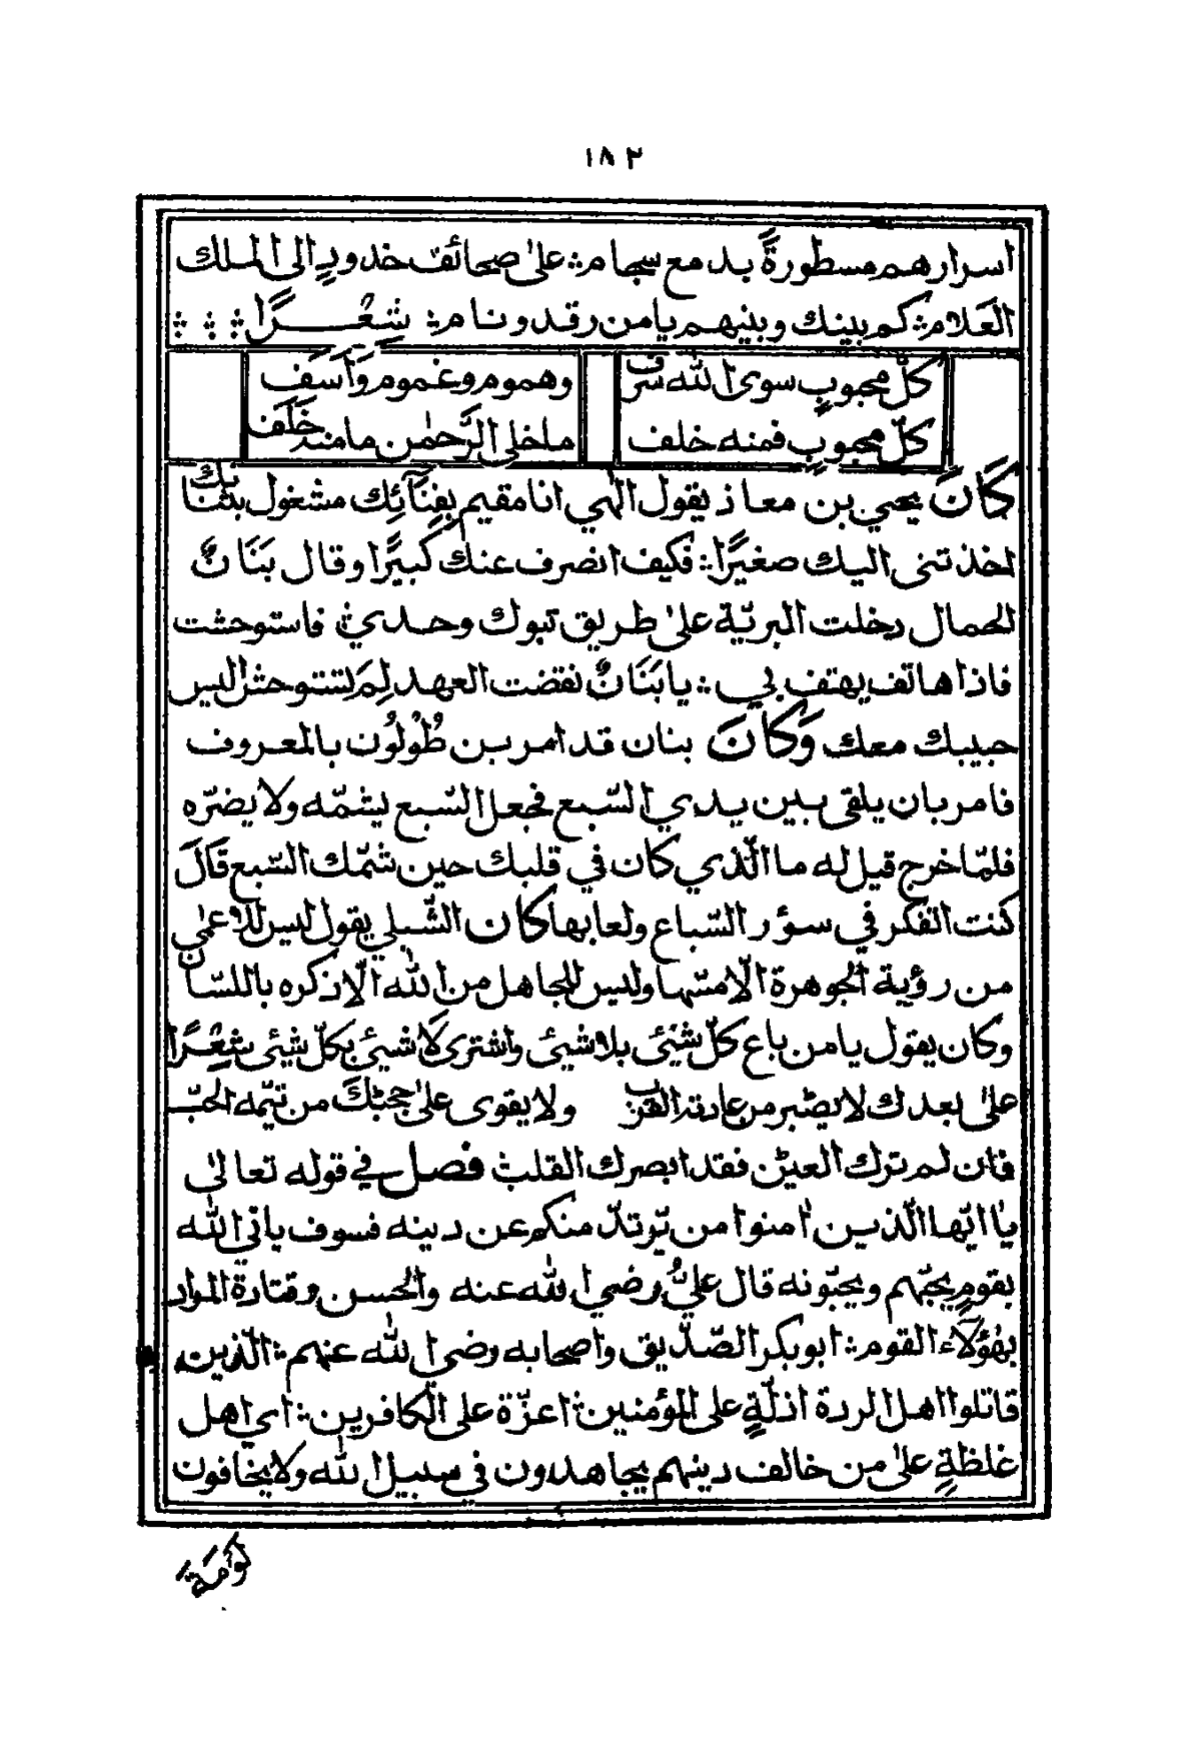 ١٨٢
اسرارهم مسطورةً بدمع سجام ؞ على صحائف خدودٍ الى الملك
العَلام ؞ كم بينك وبينهم يا من رقد ونام ؞ شِعْرًا ؞ ؞ ؞
كلّ محبوبٍ سوى الله سَرَف وهموم وغموم وَأَسَف
كلّ محبوبٍ فمنه خلف ما خلى الرَّحمٰن ما منه خَلَف
كَانَ يحيى بن معاذ يقول الٰهي انا مقيم بِفِنَآئِك مشغول بثنائك
اخذتنى اليك صغيرًا ؞ فكيف انصرف عنك كبيرًا وقال بَنَانٌ
الحمال دخلت البريّة على طريق تبوك وحدي ؞ فاستوحشت
فاذا هاتف يهتف بي ؞ يا بَنَانٌ نقضت العهد لِمَ تستوحش اليس
حبيبك معك وَكَانَ بنان قد امر بن طُولُون بالمعروف
فامر بان يلقى بين يدي السّبع فجعل السّبع يشمّه ولا يضرّه
فلمّا خرج قيل له ما الّذي كان في قلبك حين شمّك السّبع قَالَ
كنت اتفكر في سؤر السّباع ولعابها كان الشّبلي يقول ليس للاعمٰى
من رؤية الجوهرة الّا مسّها وليس للجاهل من الله الّا ذكره باللسّان
وكان يقول يا من باع كلّ شَيْئى بلا شيئى واشترى لَا شيئ بكلّ شيئى شِعْرًا
على بعدك لا يصْبر من عادته القرب ولا يقوى على حجبْكَ من تيّمه الحبّ
فان لم ترك العين ؞ فقد ابصرك القلب ؞ فصل في قوله تعالى
يٰا ايّها الّذين اٰمنوا من يّرتدّ منكم عن دينه فسوف ياتي الله
بقومٍ يحبّهم ويحبّونه قال عليٌّ رضي الله عنه والحسن وقتادة المراد
بهٰؤلَاء القوم ؞ ابو بكر الصّدّيق واصحابه رضى الله عنهم ؞ الّذين
قاتلوا اهل الردة اذلّةٍ على المؤمنين ؞ اعزّة على الكافرين ؞ اي اهل
غلظةٍ على من خالف دينهم يجاهدون في سبيل الله ولا يخافون
لومة